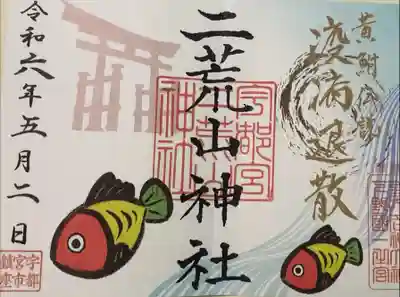 黄鮒伝説
疫病退散
二荒山神社
宇都宮
二荒山
神社
令和六年五月二日
宇都
宮市
鎮座